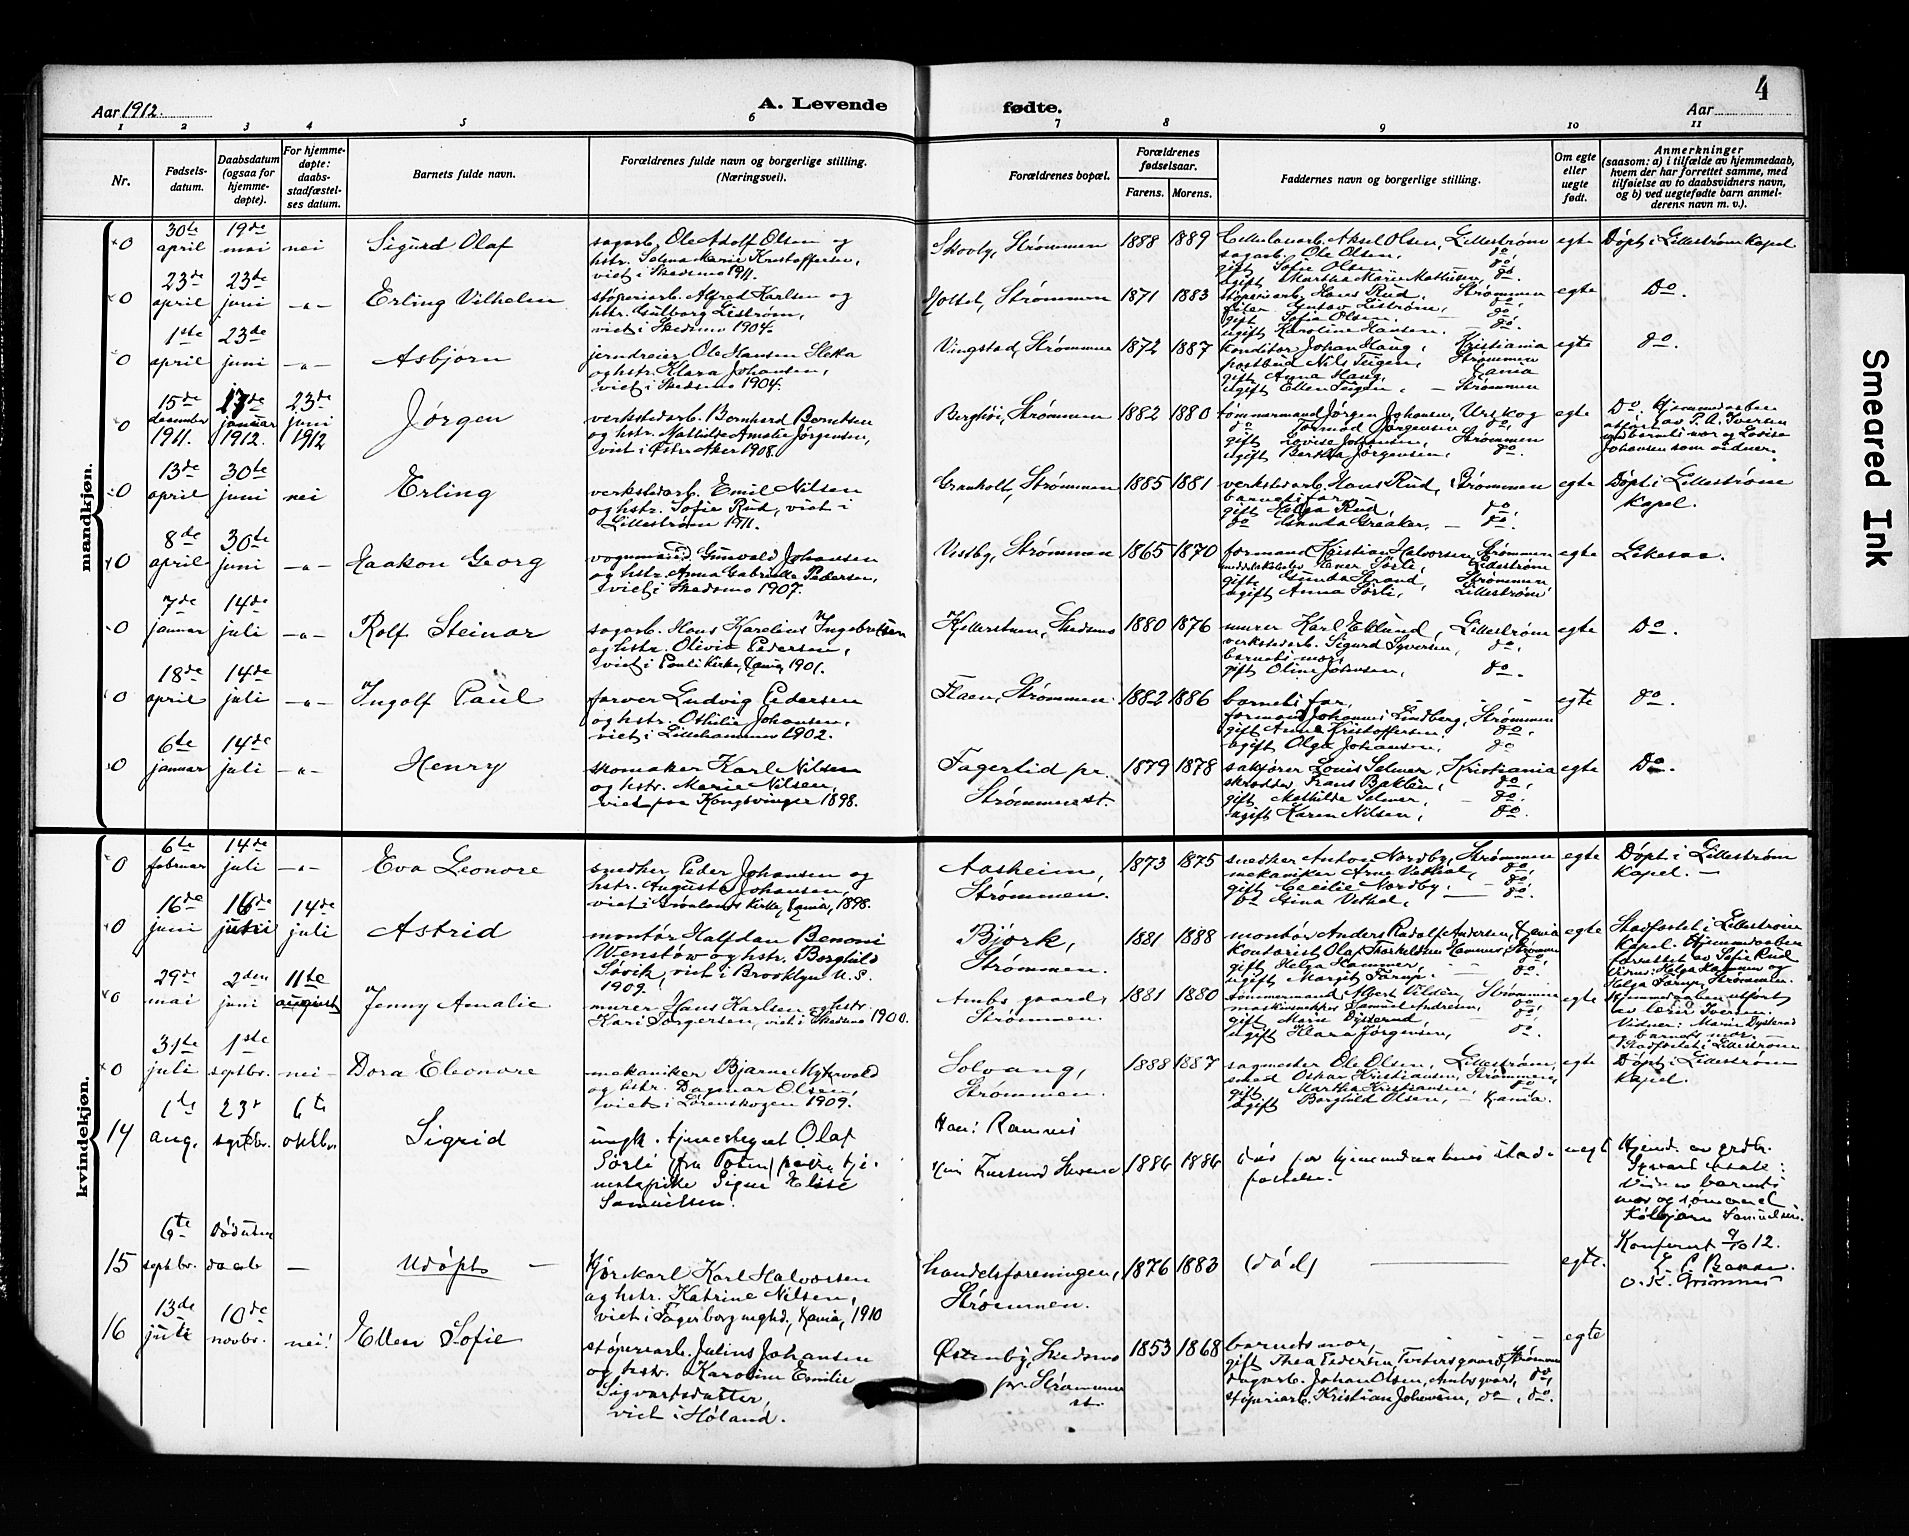 4
Aar 1912.
A. Levende fødte.
Aar
1 2 3 4 5 6 7 8 9 10 11
Nr.
Fødsels-
datum.
Daabsdatum
(ogsaa for
hjemme-
døpte).
For hjemme-
døpte:
daabs-
stadfæstel-
ses datum.
Barnets fulde navn.
Forældrenes fulde navn og borgerlige stilling.
(Næringsvei).
Forældrenes bopæl.
Forældrenes
fødselsaar.
Farens. Morens.
Faddernes navn og borgerlige stilling.
Om egte
eller
uegte
født.
Anmerkninger
(saasom: a) i tilfælde av hjemmedaab,
hvem der har forrettet samme, med
tilføielse av to daabsvidners navn,
og b) ved uegtefødte barn anmel-
derens navn m. v.).
mandkjøn.
30te april
19de mai
nei
Sigurd Olaf
sagarb. Ole Adolf Olsen og
hstr. Selma Marie Kristoffersen,
viet i Skedsmo 1911.
Skovly, Strømmen
1888 1889
Aksel Olsen, Lillestrøm
sagarb. Ole Olsen, do,
gift Sofie Olsen, do,
ugift Martha Marie Mathisen, do.
egte
Døpt i Lillestrøm Kapel
23de april
23de juni
-"-
Erling Vilhelm
støperiarb. Alfred Karlsen og
hstr. Gulborg Liström,
viet i Skedsmo 1904.
Strømmen
1871 1883
støperiarb. Hans Rud, Strømmen
Gustav Liström, do,
gift Sofie Olsen, do,
ugift Karoline Hansen. - do.
egte
Do.
1ste april
23de juni
-"-
Asbjørn
jerndreier Ole Hansen Sleka
og hstr. Klara Johansen,
viet i Skedsmo 1904.
Vingstad, Strømmen
1872 1887
konditor Johan Haug, Kristiania
postbud Nils Teigen, Strømmen
gift Anna Haug, Xania
ugift Ellen Teigen, - Strømmen
egte
do.
15de desember 1911.
januar 1912.
23de juni 1912
Jørgen
verkstedarb. Bernhard Berntsen
og hstr. Mathilde Amalie Jørgensen,
viet i Østre Aker 1908.
Berghöi, Strømmen
1882 1880
tømmermand Jørgen Johansen, Urskog
do Tormod Jørgensen do,
gift Lovise Johansen, Strømmen
ugift Bertha Jørgensen, do.
egte
Do. Hjemmedaaben
utført av P. A. Iversen
med barnets mor og Lovise
Johansen som vidner.
13de april
30te juni
nei
Erling
verkstedarb. Emil Nilsen
og hstr. Sofie Rud, viet i
Lillestrøm 1911.
Granholt, Strømmen
1885 1881
verkstedarb. Hans Rud, Strømmen
barnets far,
gift Helga Rud, do,
do Gunda Graaker, - do.
egte
Døpt i Lillestrøm
Kapel.
8de april
30te juni
-"-
Haakon Georg
vognmand Gunvald Johansen
og hstr. Anna Gabrielle Pedersen,
viet i Skedsmo 1907.
Vistby, Strømmen
1865 1870
formand Kristian Halvorsen, Strømmen
Einer Sørli, Lillestrøm
gift Gunda Strand, Strømmen,
ugift Anna Sørli, Lillestrøm
egte
Likesaa.
7de januar
14de juli
-"-
Rolf Steinar
sagarb. Hans Karelius Ingebretsen
og hstr. Olivia Pedersen,
viet i Pauli Kirke, Xania, 1901.
Skedsmo
1880 1876
murer Karl Eklund, Lillestrøm
verkstedarb. Sigurd Syversen, do,
barnets mor,
gift Oline Johnsen, do.
egte
Do.
18de april
14de juli
-"-
Ingolf Paul
farver Ludvig Pedersen
og hstr. Othilie Johansen,
viet i Lillehammer 1902.
Flaen, Strømmen.
1882 1886
barnets far, - - -
formand Johannes Lindberg, Strømmen
gift Anna Kristoffersen, do,
ugift Olga Johansen, do
egte
do.
6te januar
14de juli
-"-
Henry
skomaker Karl Nilsen
og hstr. Marie Nilsen,
viet paa Kongsvinger 1898.
Fagerlid pr.
Strømmen st.
1879 1878
sakfører Louis Selmer, Kristiania
skrædder Frans Baklien, do,
gift Mathilde Selmer, - do,
ugift Karen Nilsen, do.
egte
Do.
kvindekjøn.
6te februar
14de juli
-"-
Eva Leonore
snedker Peder Johansen og
hstr. Augusta Johansen,
viet i Grønlands Kirke, Xania, 1898.
Aasheim,
Strømmen.
1873 1875
snedker Anton Nordby, Strømmen
mekaniker Arne Vethal, do,
gift Cecilie Nordby, - do,
do Gina Vethal, - do.
egte
Døpt i Lillestrøm
Kapel. -
16de juni
16de
14de juli
Astrid
montør Halfdan Benoni
Wenstöw og hstr. Borghild
Søvik, viet i Brooklyn U. S.
1909.
Bjørk,
Strømmen.
1881 1888
montør Anders Rudolf Andersen, Xania
kontorist Olaf Thorkeldsen Hammer, Strømmen
gift Helga Hammer, - do,
ugift Margit Farup. - do.
egte
Stadfæstet i Lillestrøm
Kapel. Hjemmedaaben
forrettet av Sofie Rud
Vidner: Helga Hammer og
Helga Farup, Strømmen.
29de mai
2den juni
11te august
Jenny Amalie
murer Hans Karlsen og hstr.
Kari Jørgensen, viet i Skedsmo 1900.
Ambs gaard,
Strømmen.
1881 1880
tømmermand Albert Vildén, Strømmen
Samuel Andresen, do,
gift Marie Dysterud do,
ugift Klara Jørgensen, do.
egte
Hjemmedaaben utført
av lærer Iversen.
Vidner: Marie Dysterud
og barnets mor. -
Stadfæstet i Lillestrøm
31te juli
1ste septbr.
nei -
Dora Eleonore
mekaniker Bjarne Myhrvold
og hstr. Dagmar Olsen,
viet i Lørenskogen 1909.
Solvang,
Strømmen.
1888 1887
sagmester Ole Olsen, Lillestrøm,
smed Oskar Kristiansen, Strømmen,
gift Martha Kristiansen do,
ugift Borghild Olsen, - Xania.
egte
Døpt i Lillestrøm
Kapel.
14
aug.
septbr.
6te oktbr.
Sigrid
ungk. tjenestegut Olaf
Sørli (fra Toten) pike tje-
nestepike Signe Elise
Samuelsen.
Han:
1886 1886
uegte
mor og
Samuelsen.
15
6te septbr.
Død uten daab
-
Udøpt -
kjørekarl Karl Halvorsen
og hstr. Katrine Nilsen,
viet i Fagerborg mghd, Xania, 1910
Handelsforeningen,
Strømmen.
1876 1883
(død)
egte.
Konferert 9/10 12.
16
13de juli
10de novbr.
nei!
Ellen Sofie
støperiarb. Julius Johansen
og hstr. Karoline Emilie
Sigvartsdatter,
viet i Høland.
Østenby, Skedsmo
pr. Strømmen
st.
1853 1868
barnets mor,
gift Thea Pedersen, Strømmen
Johan Olsen, Ambsgaard, do,
støperiarb. Kristian Johansen, do, do.
egte
Smeared Ink